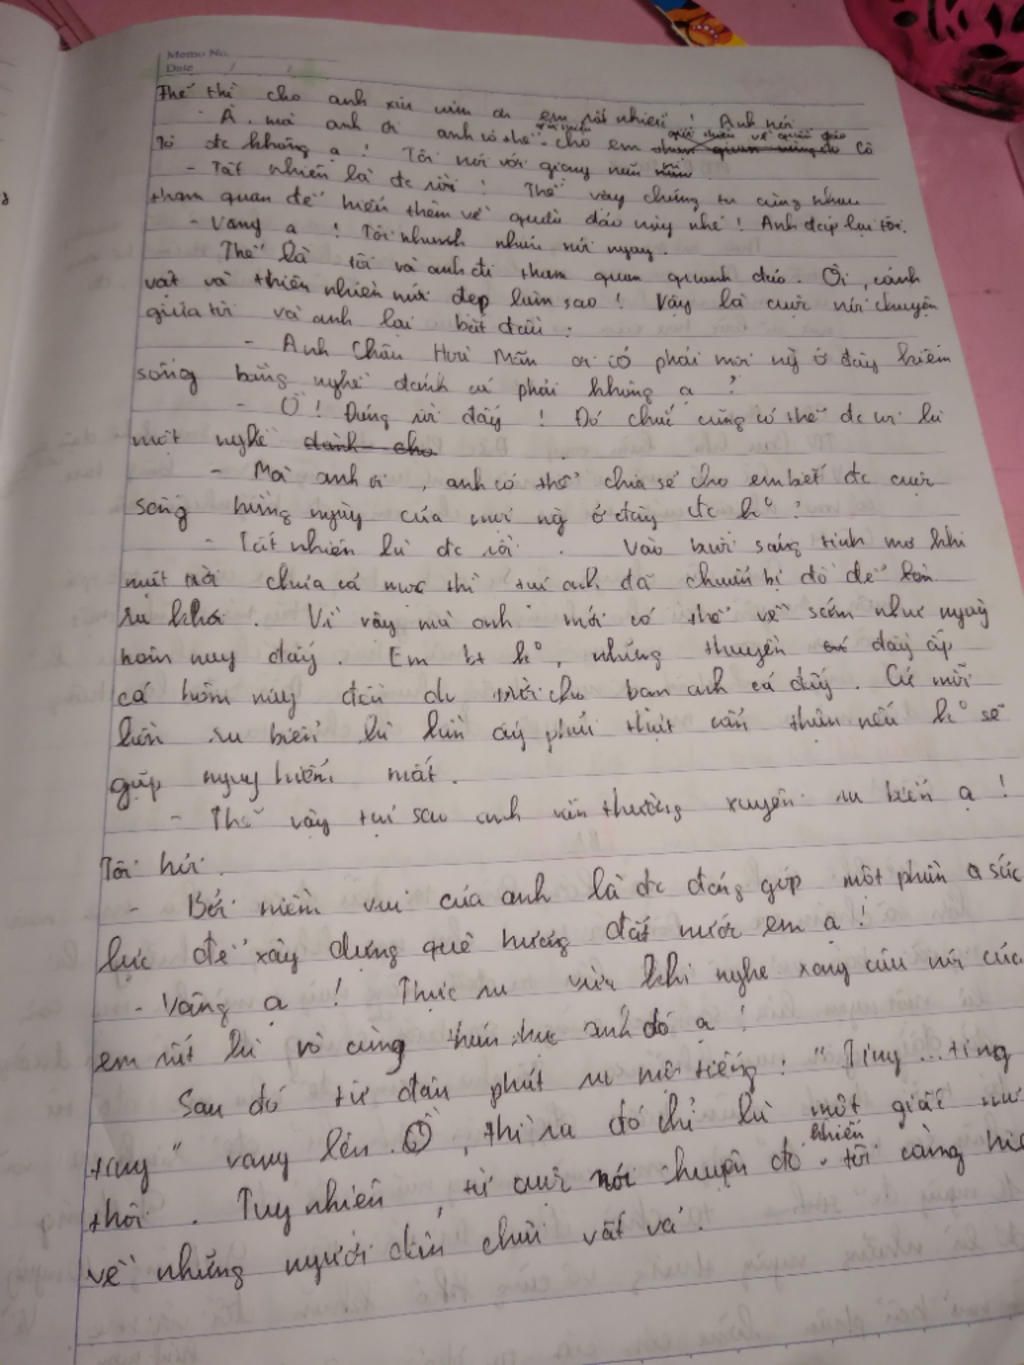 Memo No.
Date / /
Thế thì cho anh xin cảm ơn em rất nhiều ! Anh nói
- À, mà anh ơi anh có thể cho em
Tô đc không ạ ! Tôi nói với giọng
- Tất nhiên là đc rồi ! Thế vậy chúng ta cùng nhau
tham quan để hiểu thêm về quần đảo này nhé ! Anh đáp lại tôi.
- Vâng ạ ! Tôi nhanh nhảu nói ngay.
Thế là tôi và anh đi tham quan quanh đảo. Ôi, cảnh
vật và thiên nhiên nơi đẹp làm sao ! Vậy là cuộc nói chuyện
giữa tôi và anh lại bắt đầu :
- Anh Châu Hoà Mãn ơi có phải mọi ng` ở đây kiếm
sống bằng nghề đánh cá phải không ạ ?
- Ồ ! Đúng rồi đấy ! Đó chắc cũng có thể đc coi là
một nghề dành cho
- Mà anh ơi , anh có thể chia sẻ cho em biết đc cuộc
sống hằng ngày của mọi ng` ở đây đc k° ?
- Tất nhiên là đc rồi . Vào buổi sáng tinh mơ khi
mặt trời chưa cả mọc thì tụi anh đã chuẩn bị đồ để
ra khơi . Vì vậy mà anh mới có thể về sớm như ngày
hôm nay đấy . Em bt k°, những thuyền đầy ắp
cá hôm nay đều do trời cho ban anh cả đấy . Cứ mỗi
lần ra biển là lần ấy phải thật cẩn thận nếu k° sẽ
gặp nguy hiểm mất .
- Thế vậy tại sao anh vẫn thường xuyên ra biển ạ !
Tôi hỏi .
- Bởi niềm vui của anh là đc đóng góp một phần sức
lực để xây dựng quê hương đất nước em ạ !
- Vâng ạ ! Thực ra vừa khi nghe xong câu nói của
em rất là vô cùng thán phục anh đó ạ !
Sau đó từ đâu phát ra một tiếng : " Ting ... ting
ting " vang lên. Ồ , thì ra đó chỉ là một giấc mơ
thôi . Tuy nhiên , từ cuộc nói chuyện đó khiến tôi càng
về những người dân chài vất vả .